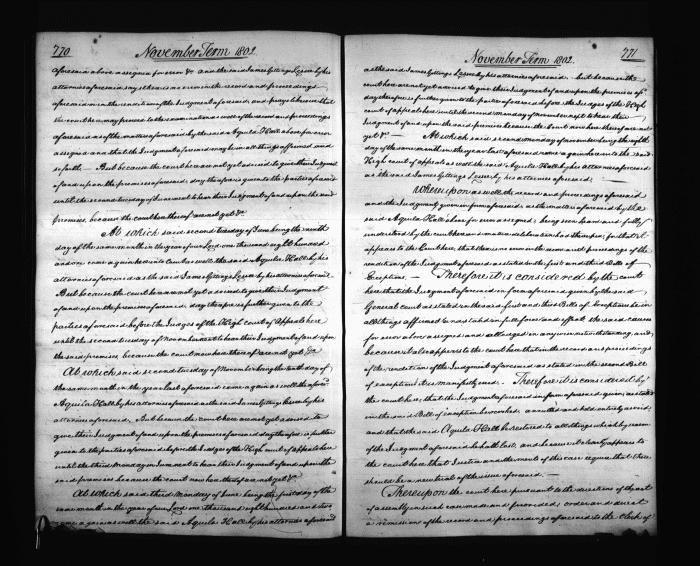 770
November Term 1802.
aforesaid above assigned for error &c. and the said James Gittings Lessee by his
attornies aforesaid say there is no error in the record and proceedings
aforesaid or in the rendition of the Judgment aforesaid, and prays here that
the court here may proceed to the examination as well of the record and proceedings
aforesaid as of the matters aforesaid by the said Aquila Hall above for error
assigned and that the Judgment aforesaid may be in all things affirmed and
so forth — But because the court here are not yet advised to give their Judgment
of and upon the premises aforesaid, day therefore is given to the parties aforesaid
until the second tuesday of June next to hear their Judgment of and upon the said
premises, because the court here thereof are not yet &c.
At which said second tuesday of June being the ninth
day of the same month in the year of our Lord one thousand eight hundred
and one come again here into Court as well the said Aquila Hall by his
attornies aforesaid as the said James Gittings Lessee by his attornies aforesaid
But because the court here are not yet advised to give their Judgment
of and upon the premises aforesaid, day therefore is further given to the
parties aforesaid before the Judges of the High court of Appeals here
until the second tuesday of November next to hear their Judgment of and upon
the said premises, because the court now here thereof are not yet &c.
At which said second tuesday of November being the tenth day of
the same month in the year last aforesaid come again as well the aforesd.
Aquila Hall by his attornies aforesaid as the said James Gittings Lessee by his
attornies aforesaid, But because the court here are not yet advised to
give their Judgment of and upon the premises aforesaid day therefore is further
given to the parties aforesaid before the Judges of the High court of Appeals here
until the third Monday in June next to hear their Judgment of and upon the
said premises because the court now here thereof are not yet &c.
At which said third Monday of June being the first day of the
same month in the year of our Lord one thousand eight hundred and two
come again as well the said Aquila Hall by his attornies aforesaid
November Term 1802.
771
as the said James Gittings Lessee by his attornies aforesaid. but because the
court here are not yet advised to give their Judgment of and upon the premises afsd.
day therefore is further given to the parties aforesaid before the Judges of the High
court of Appeals here until the second monday of November next to hear their
Judgment of and upon the said premises because the Court now here thereof are not
yet &c. — At which said second monday of november being the eighth
day of the same month in the year last aforesaid come again here into the said
High court of appeals as well the said Aquila Hall by his attornies aforesaid
as the said James Gittings Lessee by his attornies aforesaid. —
Whereupon as well the record and proceedings aforesaid
and the Judgment given in form aforesaid, as the matters aforesaid by the
said Aquila Hall above for error assigned being seen, heard and fully
understood by the court here and mature deliberation had thereupon, for that it
appears to the Court here, that there is no error in the record and proceedings of the
rendition of the Judgment aforesaid as stated in the first and third Bills of
Exceptions — Therefore it is considered by the court
here that the Judgment aforesaid in form aforesaid given by the said
General court as stated in the said first and third Bills of Exceptions be in
all things affirmed and stand in full force and effect the said causes
for error above assigned and alledged in any wise notwithstanding, and
because it also appears to the court here that in the record and proceedings
of the rendition of the Judgment aforesaid as stated in the second Bill
of exceptions it is manifestly erred. Therefore it is considered by
the court here, that the Judgment aforesaid in form aforesaid given as stated
in the said Bill of exceptions be revoked, annulled and held entirely as void,
and that the said Aquila Hall be restored to all things which by reason
of the Judgment aforesaid he hath lost, and because it clearly appears to
the court here that Justice and the merits of the case require that there
should be a new trial of the issue aforesaid —
Thereupon the court here pursuant to the directions of the act
of assembly in such case made and provided, order and direct
a remission of the record and proceedings aforesaid to the Clerk of